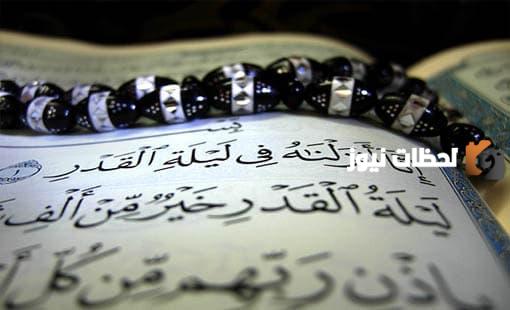 إِنَّا أَنزَلْنَٰهُ فِى لَيْلَةِ ٱلْقَدْرِ ١
لَيْلَةُ ٱلْقَدْرِ خَيْرٌ مِّنْ أَلْفِ
بِإِذْنِ رَبِّهِم مِّن كُلِّ
لحظات نيوز